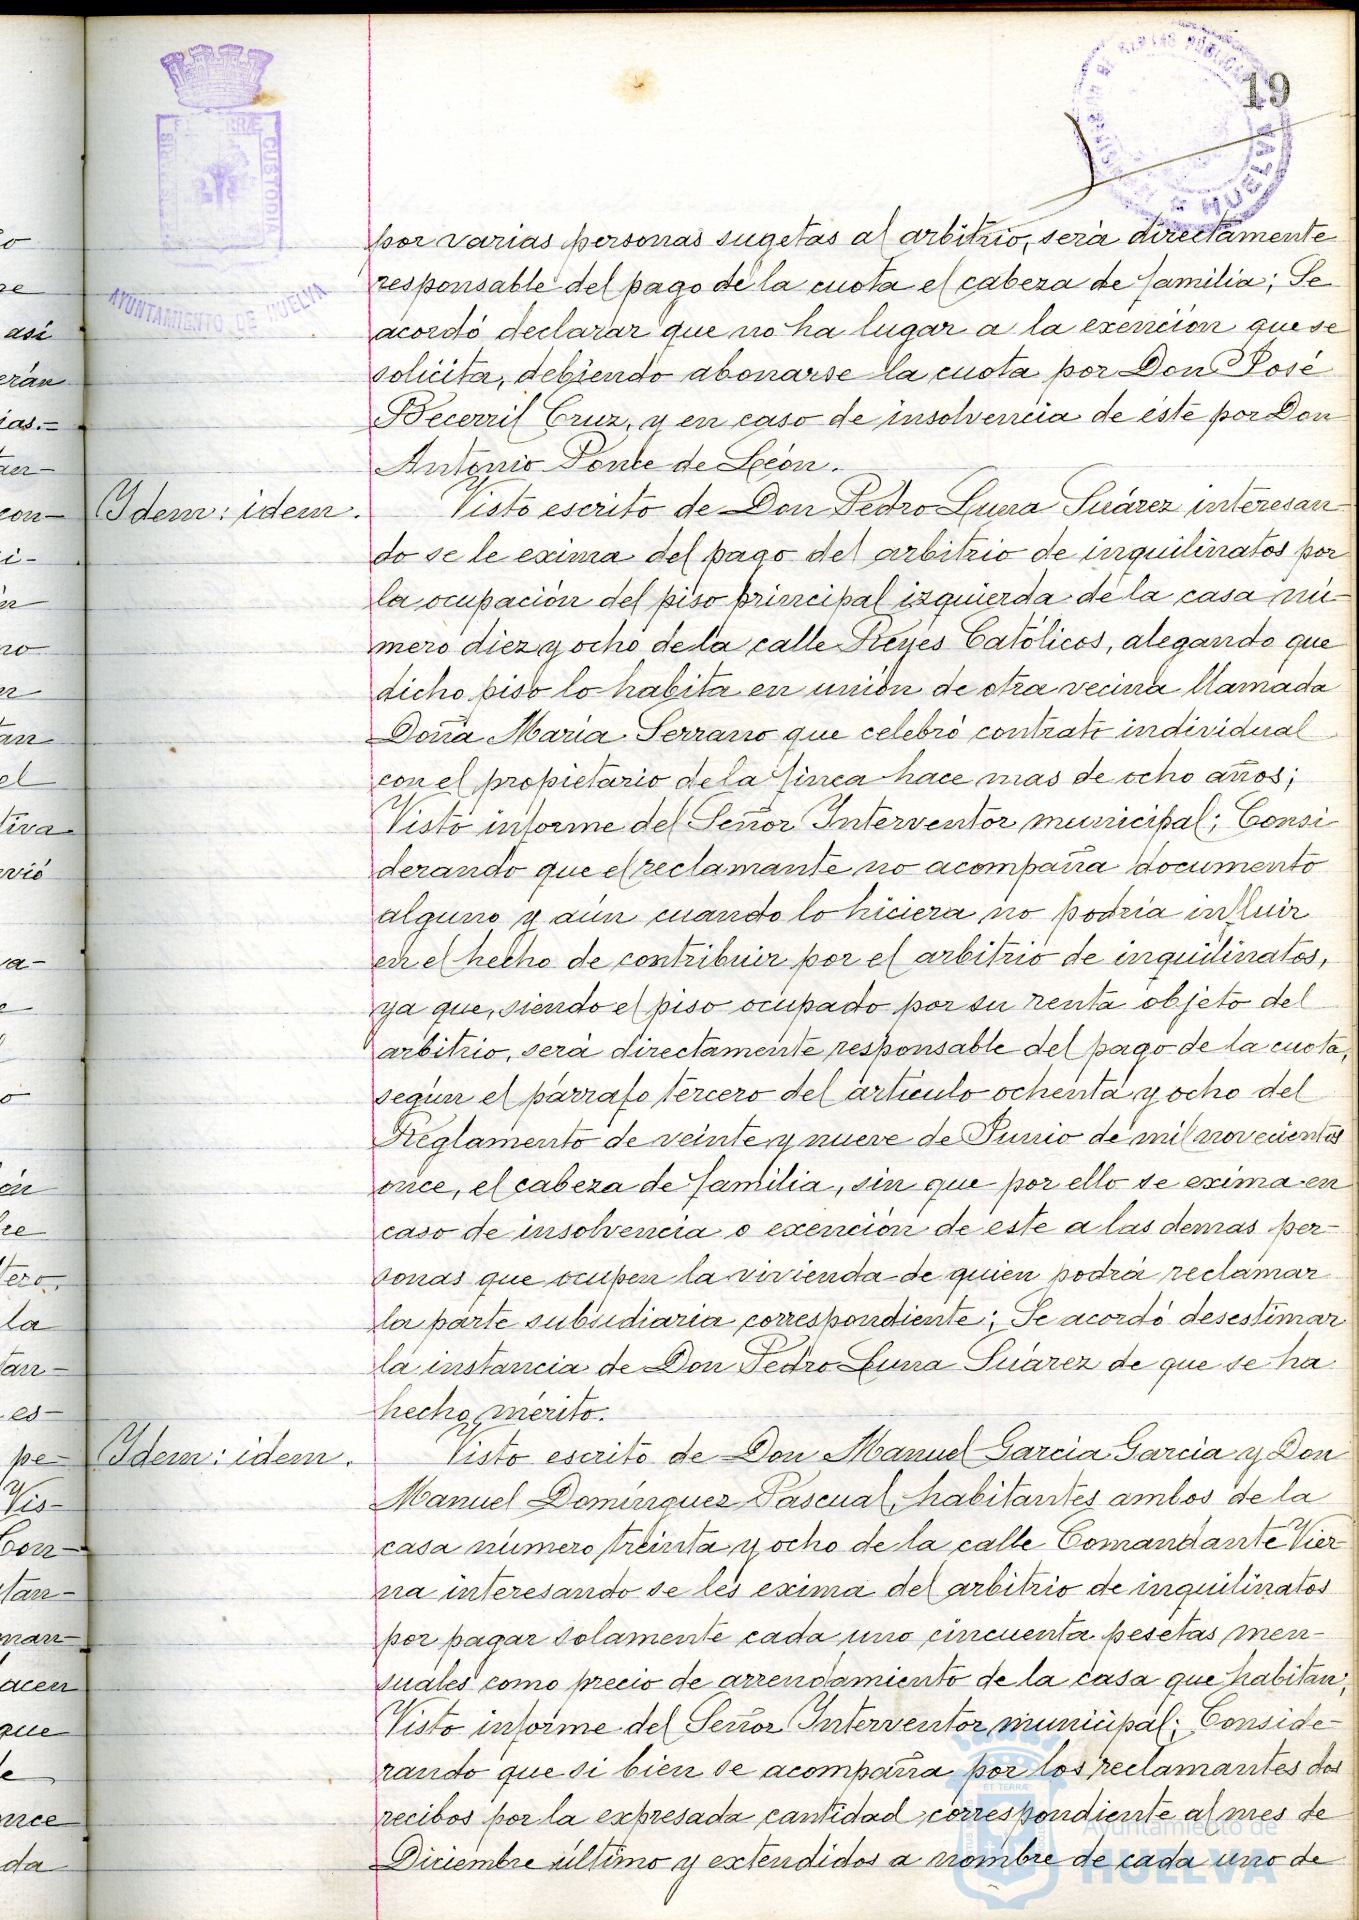 19
AYUNTAMIENTO DE HUELVA
HUELVA
por varias personas sugetas al arbitrio, será directamente
responsable del pago de la cuota el cabeza de familia; Se
acordó declarar que no ha lugar a la exención que se
solicita, debiendo abonarse la cuota por Don José
Becerril Cruz, y en caso de insolvencia de éste por Don
Antonio Ponce de León.
Idem: idem.
Visto escrito de Don Pedro Luna Suárez interesan-
do se le exima del pago del arbitrio de inquilinatos por
la ocupación del piso principal izquierda de la casa nú-
mero diez y ocho de la calle Reyes Católicos, alegando que
dicho piso lo habita en unión de otra vecina llamada
Doña María Serrano que celebró contrato individual
con el propietario de la finca hace mas de ocho años;
Visto informe del Señor Interventor municipal; Consi
derando que el reclamante no acompaña documento
alguno y aún cuando lo hiciera no podría influir
en el hecho de contribuir por el arbitrio de inquilinatos,
ya que, siendo el piso ocupado por su renta objeto del
arbitrio, será directamente responsable del pago de la cuota,
según el párrafo tercero del artículo ochenta y ocho del
Reglamento de veinte y nueve de Junio de mil novecientos
once, el cabeza de familia, sin que por ello se exima en
caso de insolvencia o exención de este a las demas per-
sonas que ocupen la vivienda de quien podrá reclamar
la parte subsidiaria correspondiente; Se acordó desestimar
la instancia de Don Pedro Luna Suárez de que se ha
hecho mérito.
Idem: idem.
Visto escrito de Don Manuel García García y Don
Manuel Domínguez Pascual, habitantes ambos de la
casa número treinta y ocho de la calle Comandante Vier-
na interesando se les exima del arbitrio de inquilinatos
por pagar solamente cada uno cincuenta pesetas men-
suales como precio de arrendamiento de la casa que habitan;
Visto informe del Señor Interventor municipal; Conside-
rando que si bien se acompaña por los reclamantes dos
recibos por la expresada cantidad correspondiente al mes de
Diciembre último y extendidos a nombre de cada uno de
Ayuntamiento de
HUELVA